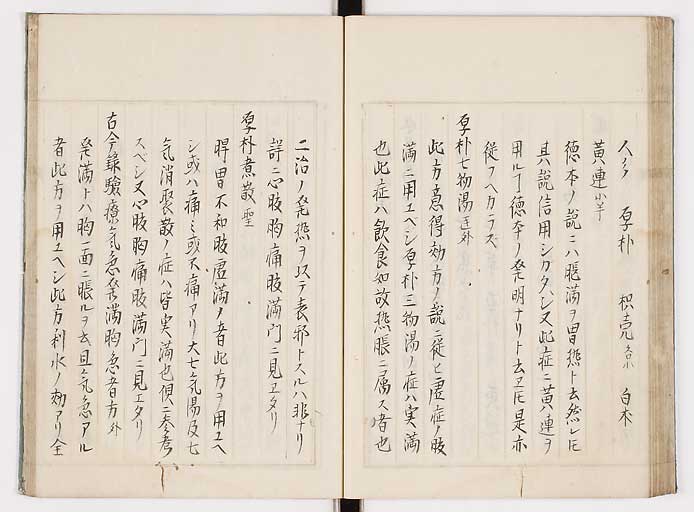 人参 厚朴 枳壳各小 白术
黄連 小半
徳本ノ説ニハ脹満ヲ胃熱ト云然レ𪜈
其説信用シカタシ又此症ニ黄連ヲ
用ルヿ徳本ノ発明ナリト云ヱ𪜈是亦
従フヘカラス
厚朴七物湯 匡外
此方意得効方ノ説ニ従ヒ虚症ノ腹
満ニ用ユヘシ厚朴三物湯ノ症ハ実満
也此症ハ飲食如故熱脹ニ属ス者也
ニ治ノ発熱ヲ以テ表邪トスルハ非ナリ
詳ニ心腹胸痛腹満門ニ見ヱタリ
厚朴煮散 聖
脾胃不和腹虚満ノ者此方ヲ用ユヘ
シ或ハ痛ミ或大痛アリ大七気湯及七
気消聚散ノ症ハ皆実満也倶ニ参考
スベシ又心腹胸痛腹満門ニ見エタリ
古今録験療気急発満胸急者方 外
発満トハ胸一面ニ脹ルヲ云且気急アル
者此方ヲ用ユヘシ此方利水ノ効アリ全